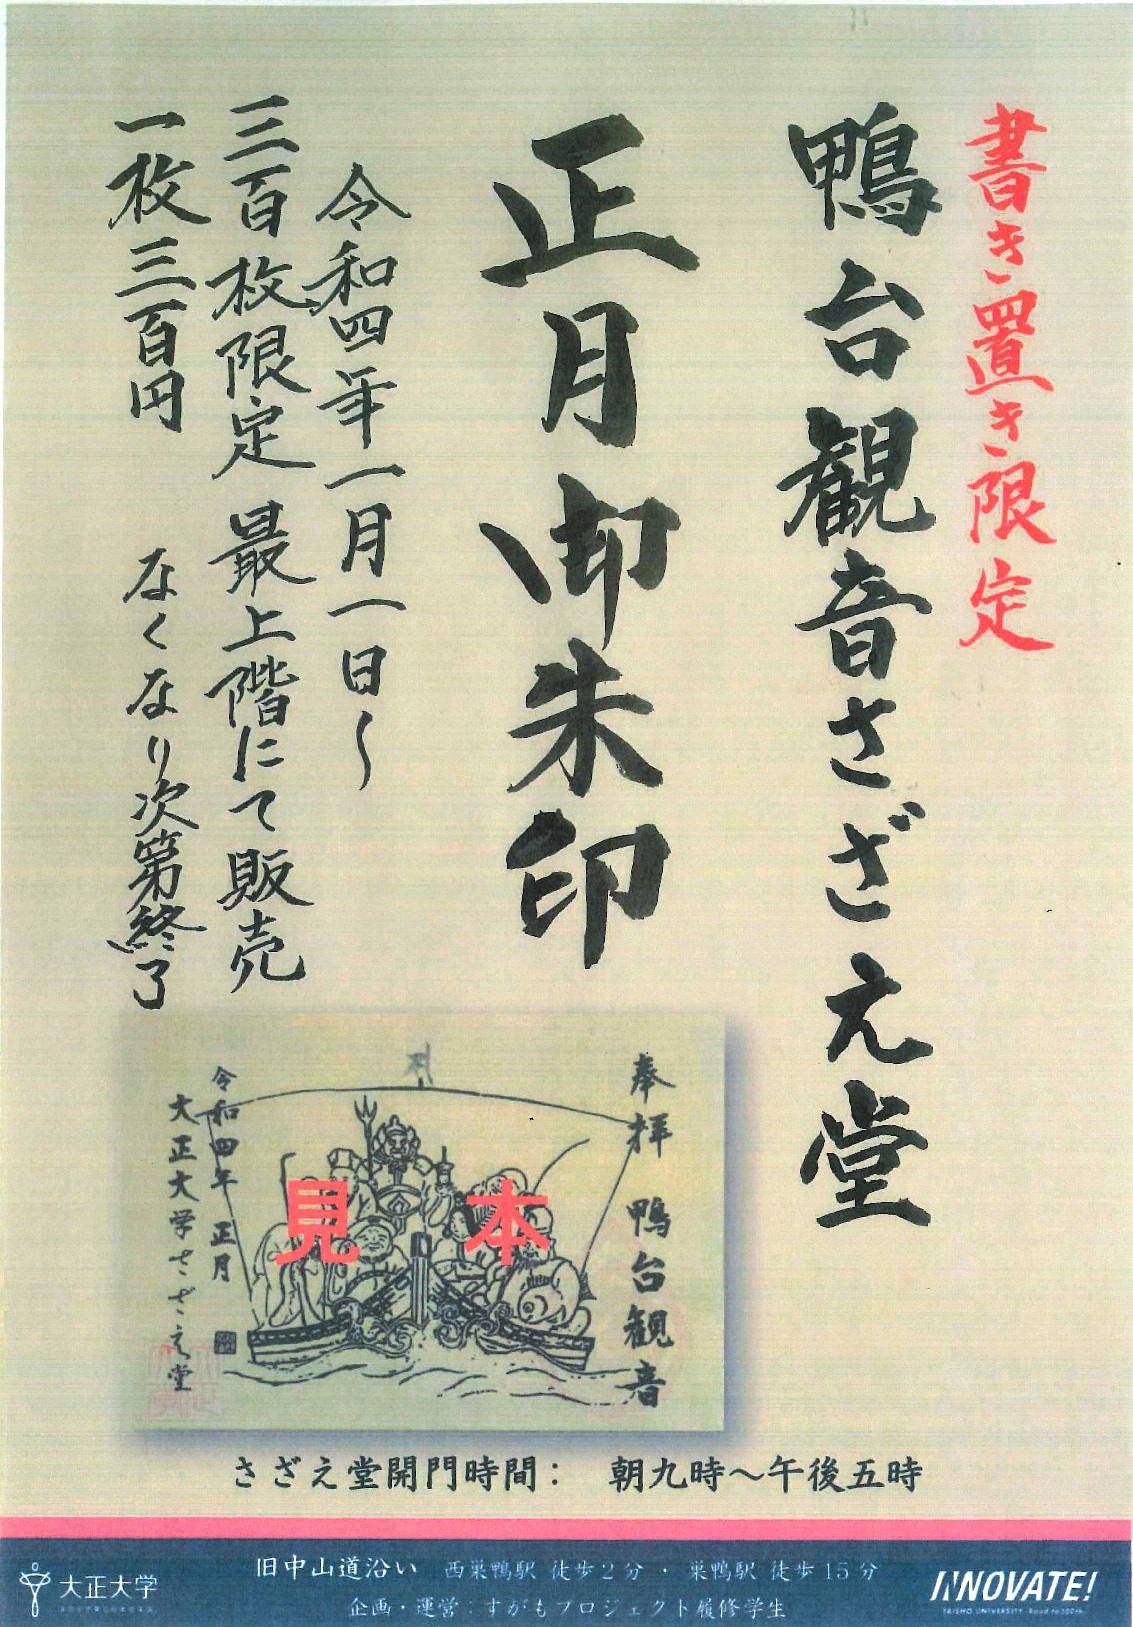 書き置き限定
鴨台観音さざえ堂
正月御朱印
令和四年一月一日〜
三百枚限定 最上階にて販売
一枚三百円 なくなり次第終了
奉拝 鴨台観音
見本
令和四年 正月
大正大学さざえ堂
さざえ堂開門時間： 朝九時〜午後五時
旧中山道沿い 西巣鴨駅 徒歩2分 ・ 巣鴨駅 徒歩15分
企画・運営：すがもプロジェクト履修学生
大正大学
INNOVATE!
TAISHO UNIVERSITY Road to 100th